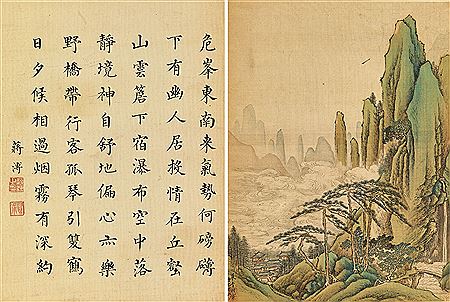 危峯東南来氣勢何磅礴
下有幽人居放情在丘壑
山雲簷下宿瀑布空中落
靜境神自舒地偏心亦樂
野橋帶行客孤琴引鶴
日夕候相過烟霧有深約
蔣溥